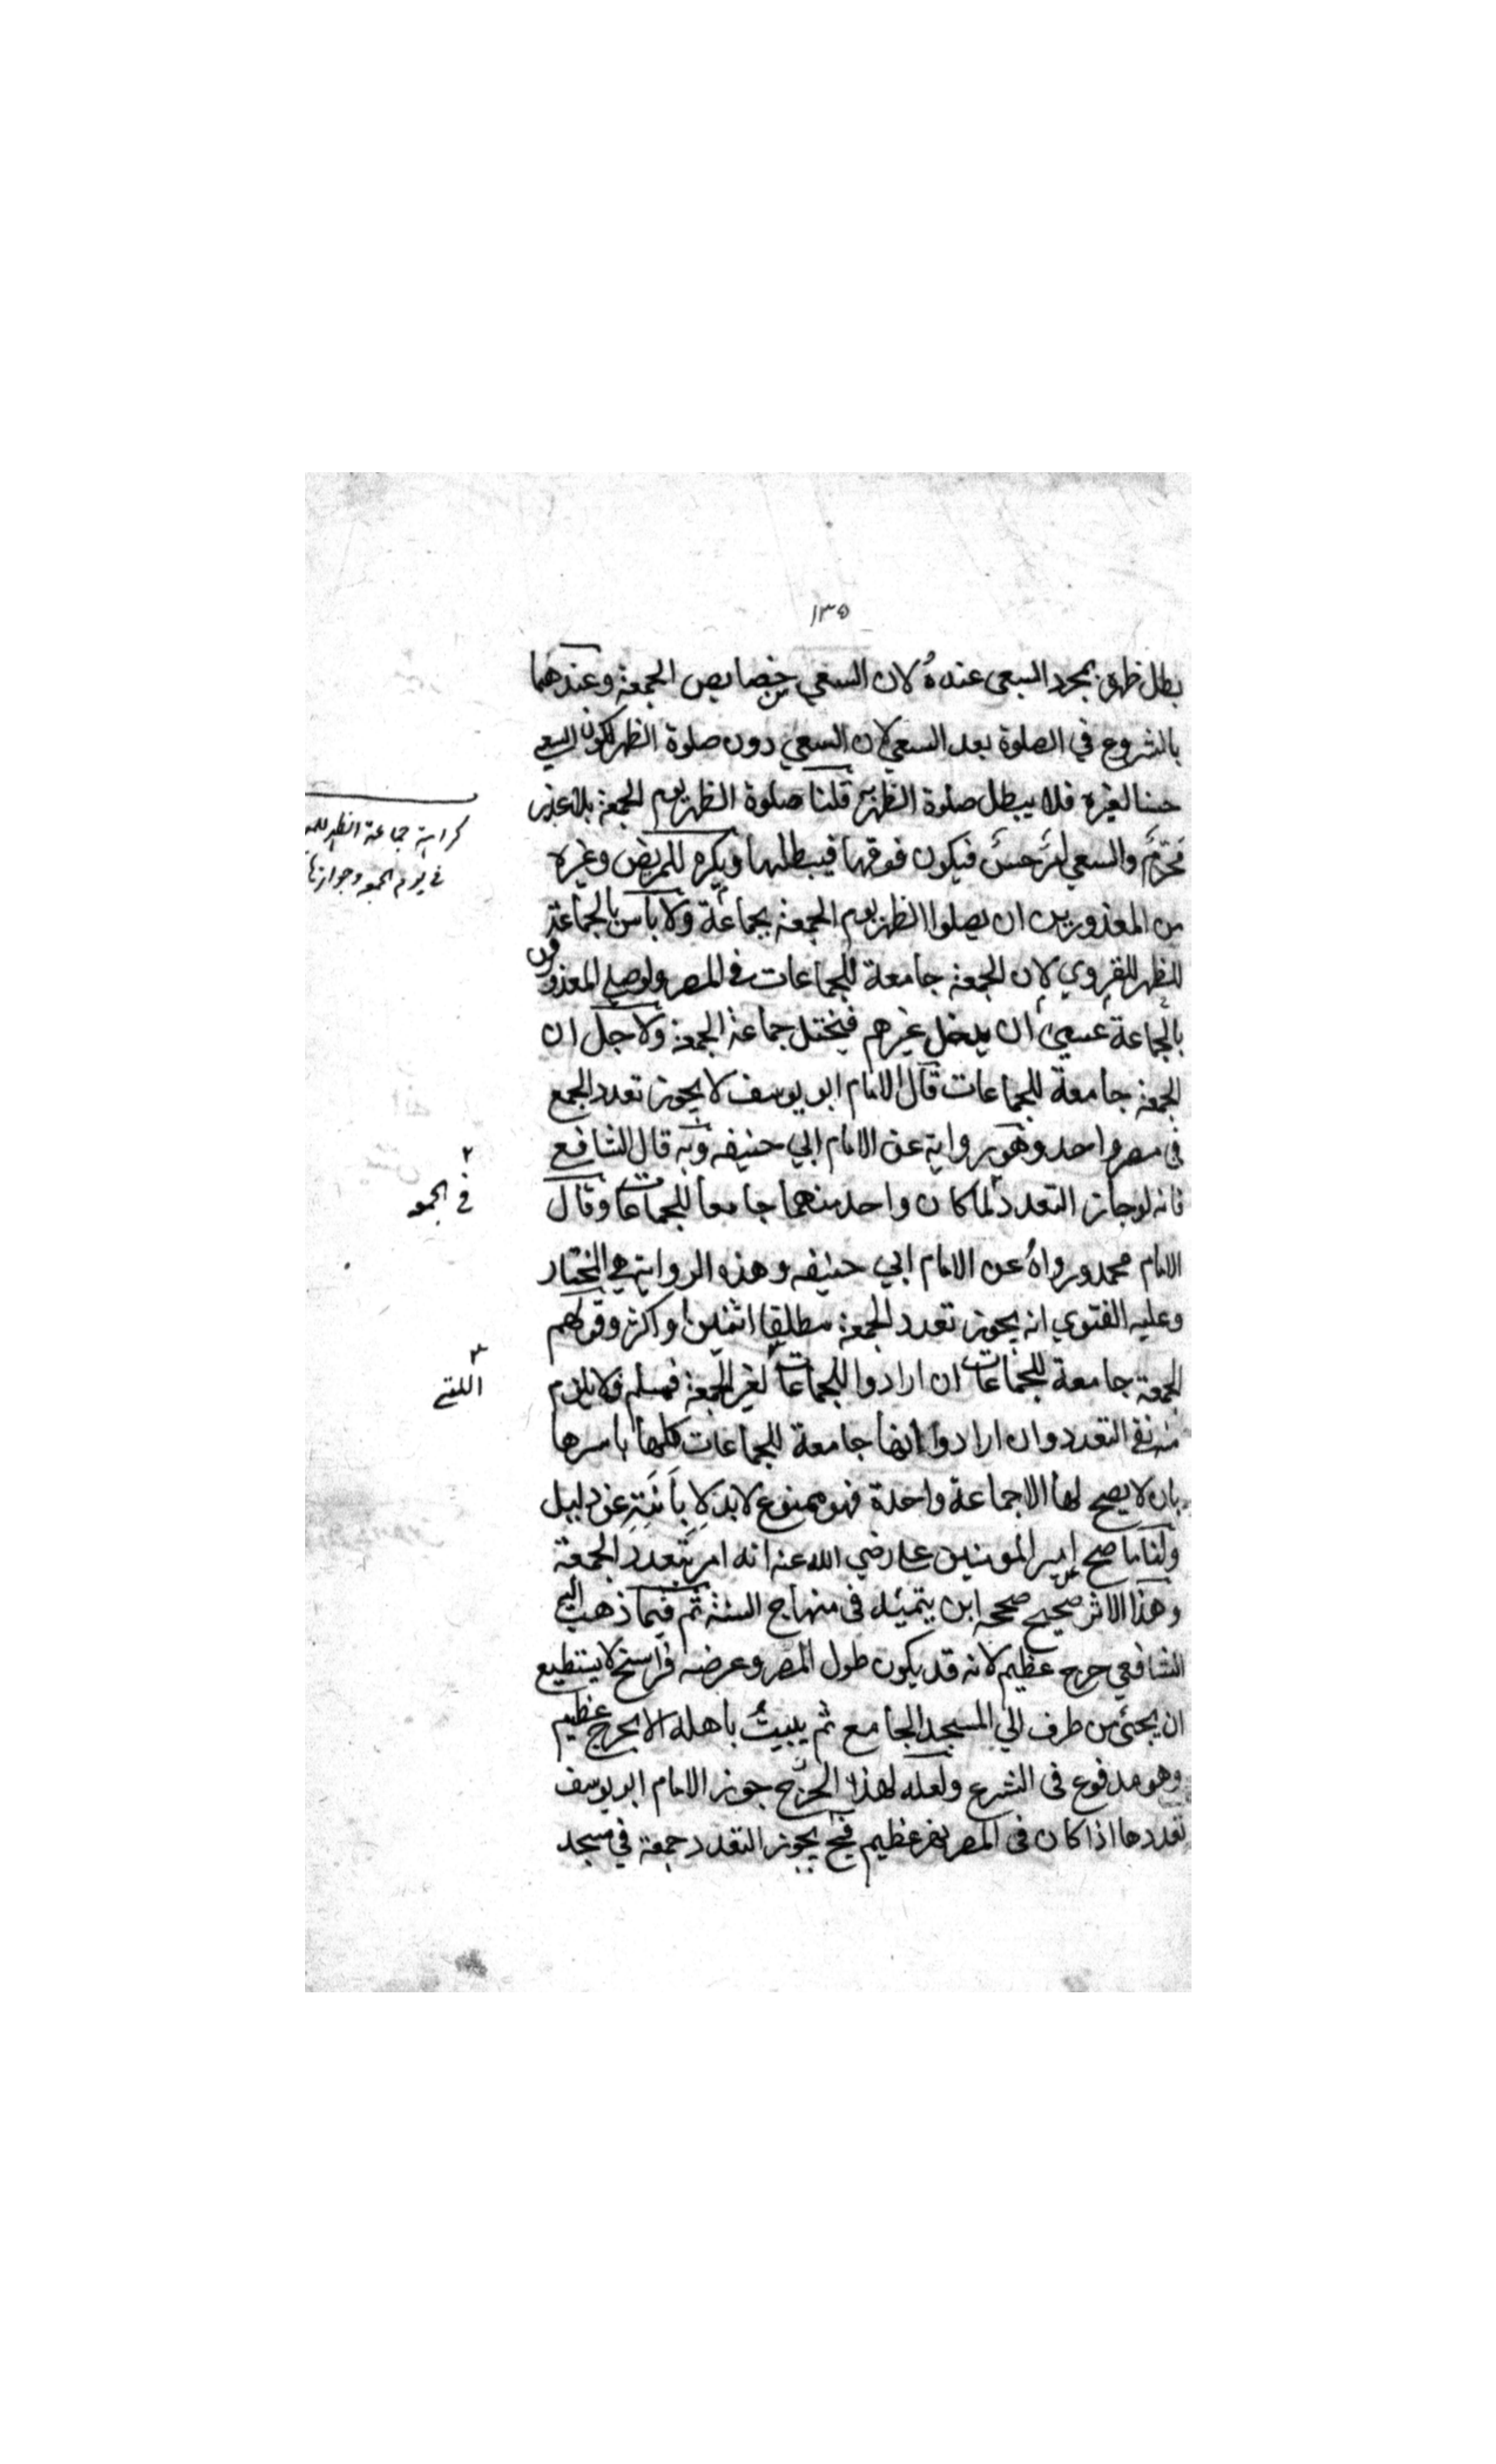 ١٣٥
بطل ظهره بمجرد السعي عنده لان السعي من خصايص الجمعة وعندهما
بالشروع في الصلوة بعد السعي لان السعي دون صلوة الظهر لكون السعي
حسنا لغيره فلا يبطل صلوة الظهر قلنا صلوة الظهر يوم الجمعة بلا عذر
محرم والسعي امر حسن فيكون فوقها فيبطلها ويكره للمريض وغيره
من المعذورين ان يصلوا الظهر يوم الجمعة بجماعة ولا باس بالجماعة
للظهر للقروي لان الجمعة جامعة للجماعات في المصر ولو صلى المعذورون
بالجماعة عسى ان يدخل غيرهم فيختل جماعة الجمعة ولاجل ان
الجمعة جامعة للجماعات قال الامام ابو يوسف لا يجوز تعدد الجمع
في مصر واحد وهو رواية عن الامام ابي حنيفه وبه قال الشافع
فانه لو جاز التعدد لما كان واحد منهما جامعا للجماعات وقال
الامام محمد ورواه عن الامام ابي حنيفه وهذه الرواية هي المختار
وعليه الفتوي انه يجوز تعدد الجمعة مطلقا اثنين او اكثر وقولهم
الجمعة جامعة للجماعات ان ارادوا للجماعات لغير الجمعة فمسلم ولا يلزم
منه نفى التعدد وان ارادوا انها جامعة للجماعات كلها باسرها
بان لا يصح لها الا جماعة واحدة فهو ممنوع لابد لابانته عن دليل
ولنا ما صح عن امير المومنين علي رضي الله عنه انه امر بتعدد الجمعة
وهذا الاثر صحيح صححه ابن يتميه فى منهاج السنة ثم فيما ذهب اليه
الشافعي حرج عظيم لانه قد يكون طول المصر وعرضه فراسخ لا يستطيع
ان يجئ من طرف الي المسجد الجامع ثم يبيت باهله الا بحرج عظيم
وهو مدفوع فى الشرع ولعله لهذا الحرج جوز الامام ابو يوسف
تعددها اذا كان فى المصر نهر عظيم فح يجوز التعدد جمعة في مسجد
كراهية جماعة الظهر
في يوم الجمعه وجوازها
٢
في الجمعه
٣